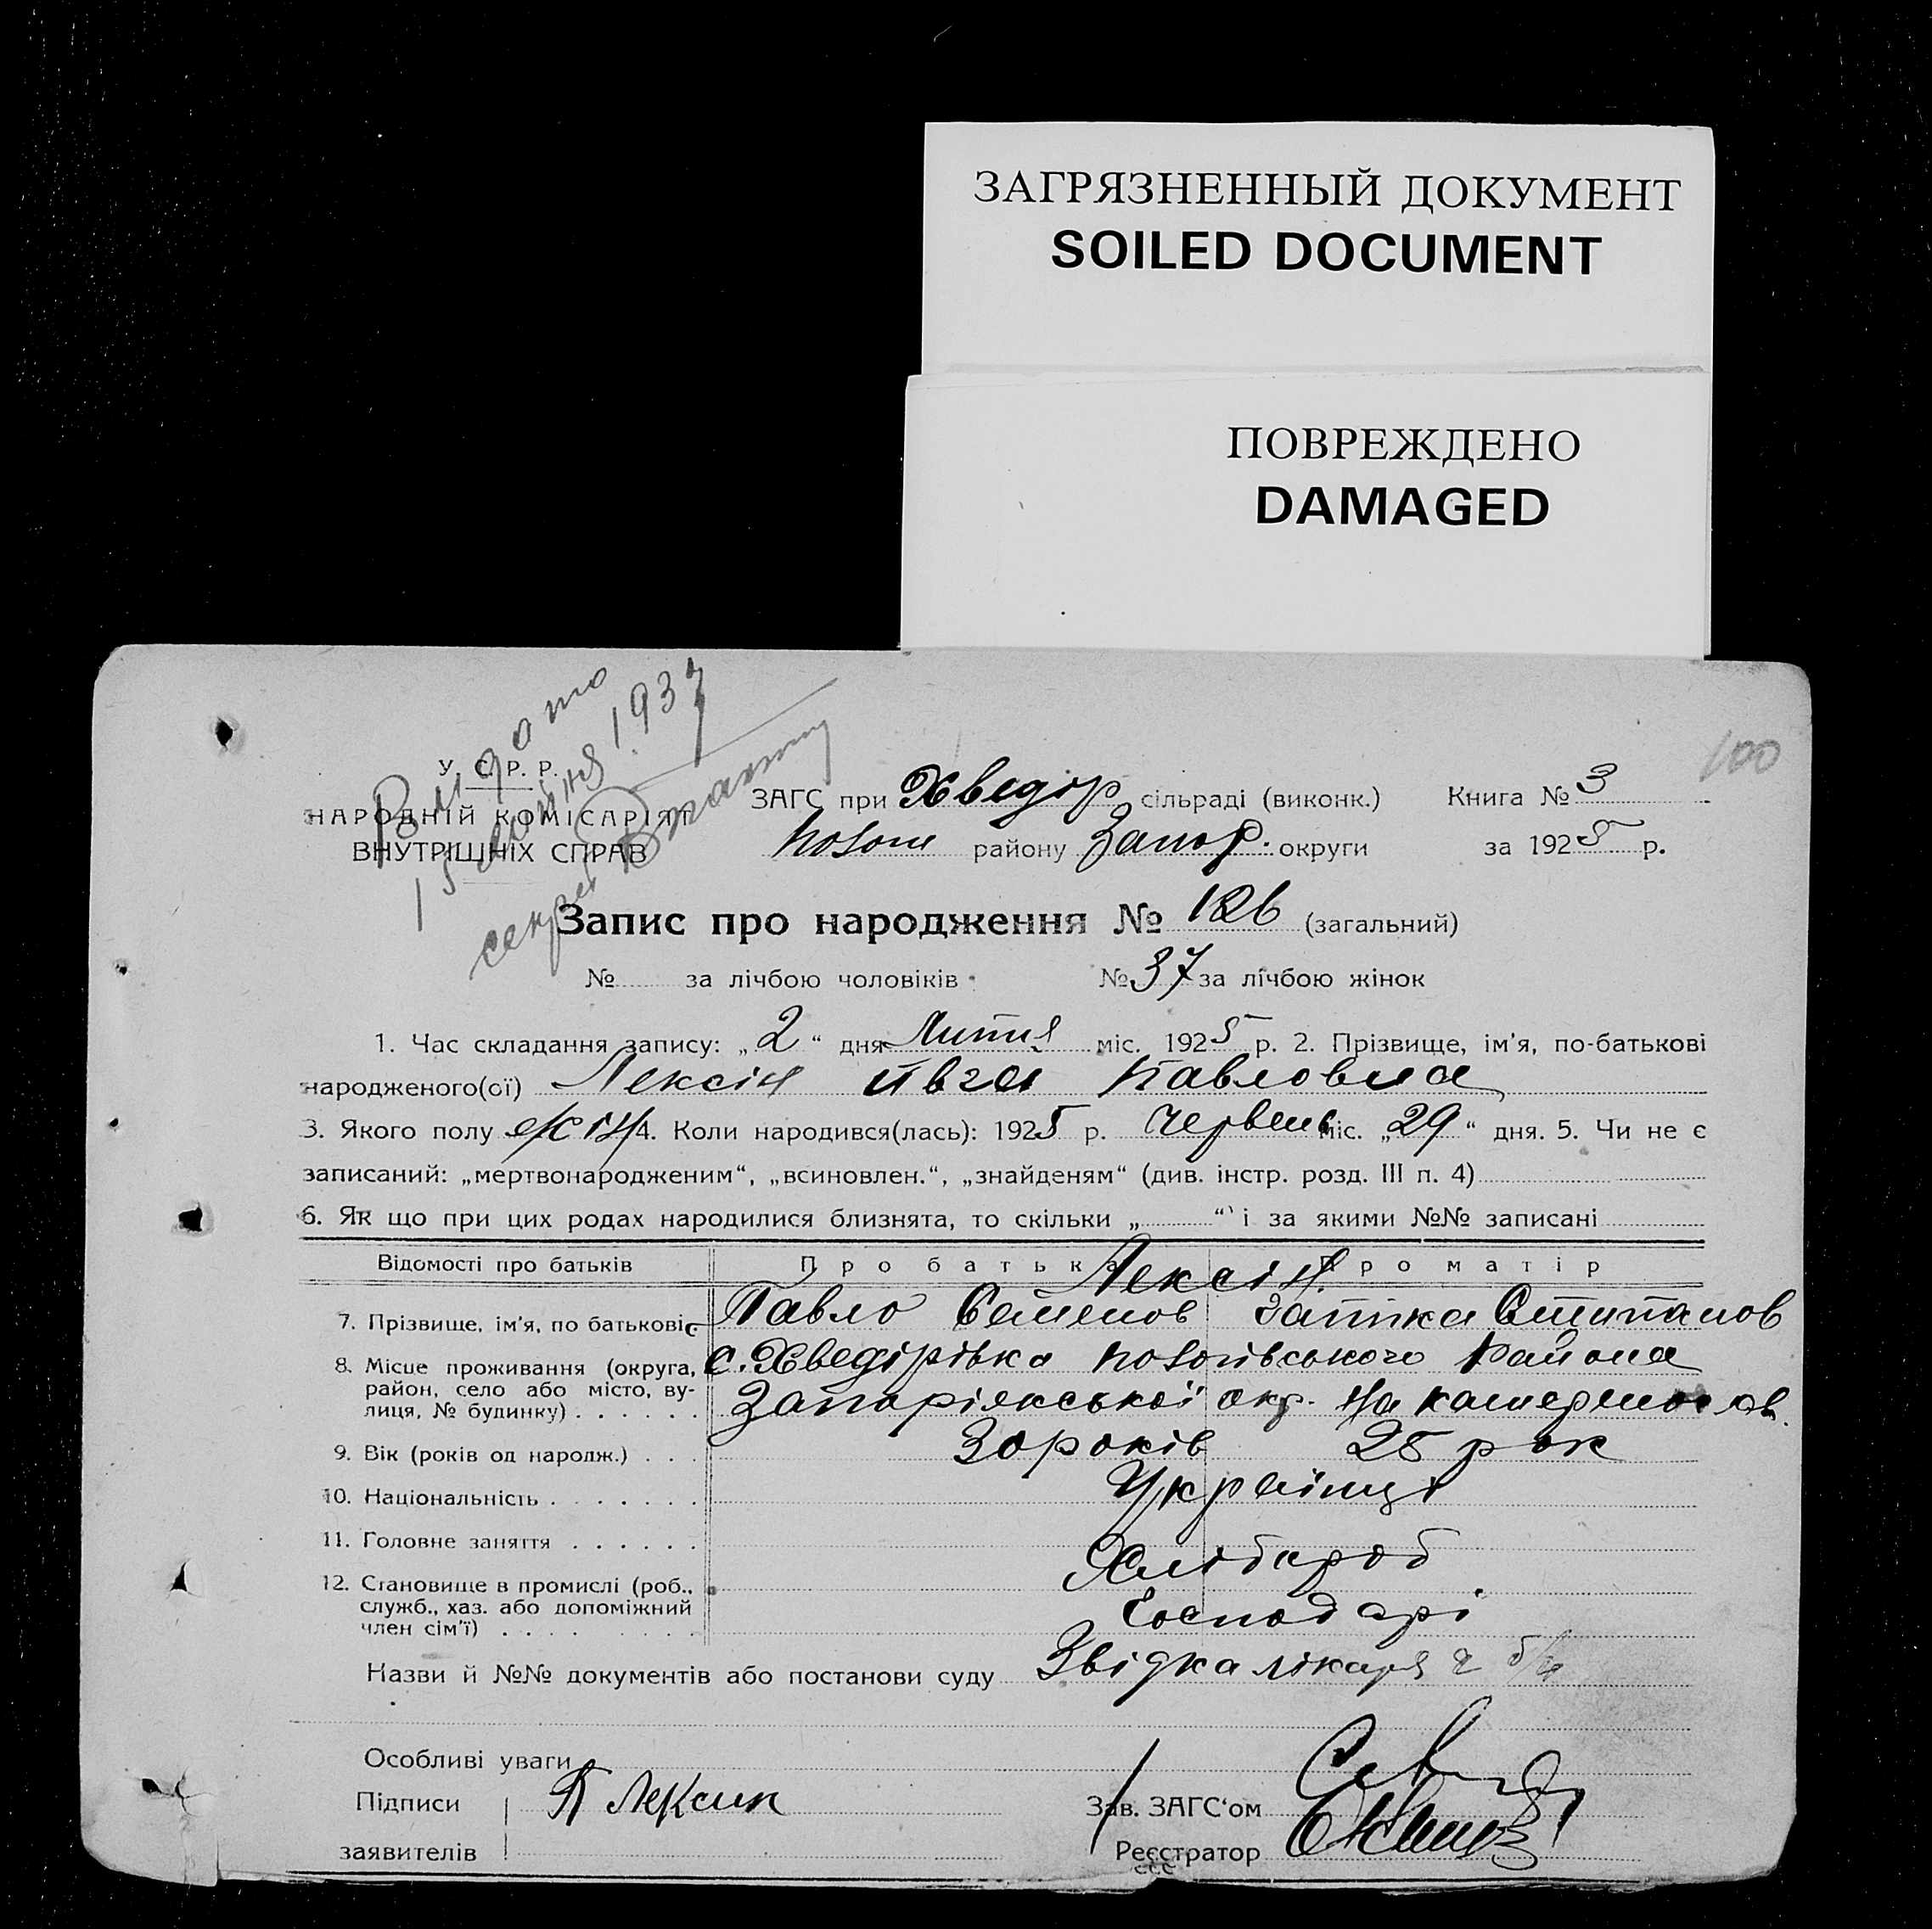 ЗАГРЯЗНЕННЫЙ ДОКУМЕНТ
SOILED DOCUMENT
ПОВРЕЖДЕНО
DAMAGED
100
Видано
15 1937
секрет
У. С. Р. Р.
НАРОДНІЙ КОМІСАРІЯТ
ВНУТРІШНІХ СПРАВ
ЗАГС при Хведір сільраді (виконк.) Книга № 3
району Запор. округи за 1925 р.
Запис про народження № 126 (загальний)
№ за лічбою чоловіків № 37 за лічбою жінок
1. Час складання запису: „2“ дня Липня міс. 1925 р. 2. Прізвище, ім'я, по-батькові
народженого(ої) Лексін Ивга Павловна
3. Якого полу жін 4. Коли народився(лась): 1925 р. Червень міс. „29“ дня. 5. Чи не є
записаний: „мертвонародженим“, „всиновлен.“, „знайденям“ (див. інстр. розд. III п. 4)
6. Як що при цих родах народилися близнята, то скільки „ “ і за якими №№ записані
Відомості про батьків Про батька Про матір
Лексін
7. Прізвище, ім'я, по батькові Павло Семенов Степанов
8. Місце проживання (округа, с. Хведірівка района
район, село або місто, ву-
лиця, № будинку) Запоріжської окр. На
9. Вік (років од народж.) 30 років 25 рок
10. Національність Українці
11. Головне заняття Хлібороб
12. Становище в промислі (роб.,
служб., хаз. або допоміжний
член сім'ї) Господарі
Назви й №№ документів або постанови суду Звідка лікаря ч б/н
Особливі уваги
Підписи П Лексин Зав. ЗАГС'ом
заявителів Реєстратор